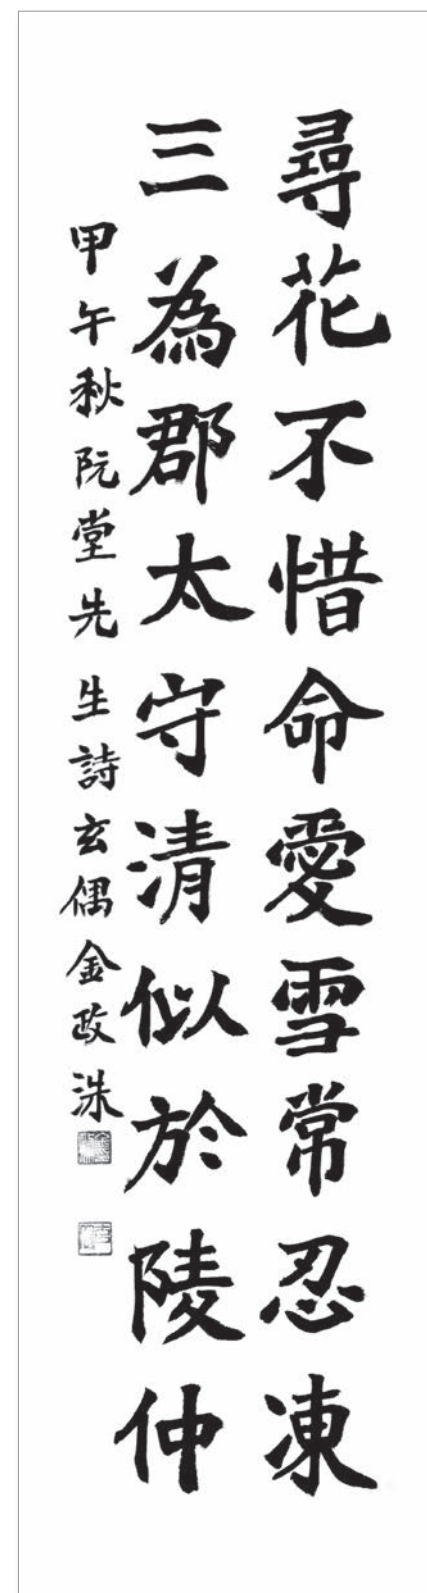 尋花不惜命愛雪常忍凍
三為郡太守清似於陵仲
甲午秋阮堂先生詩玄偶金政洙